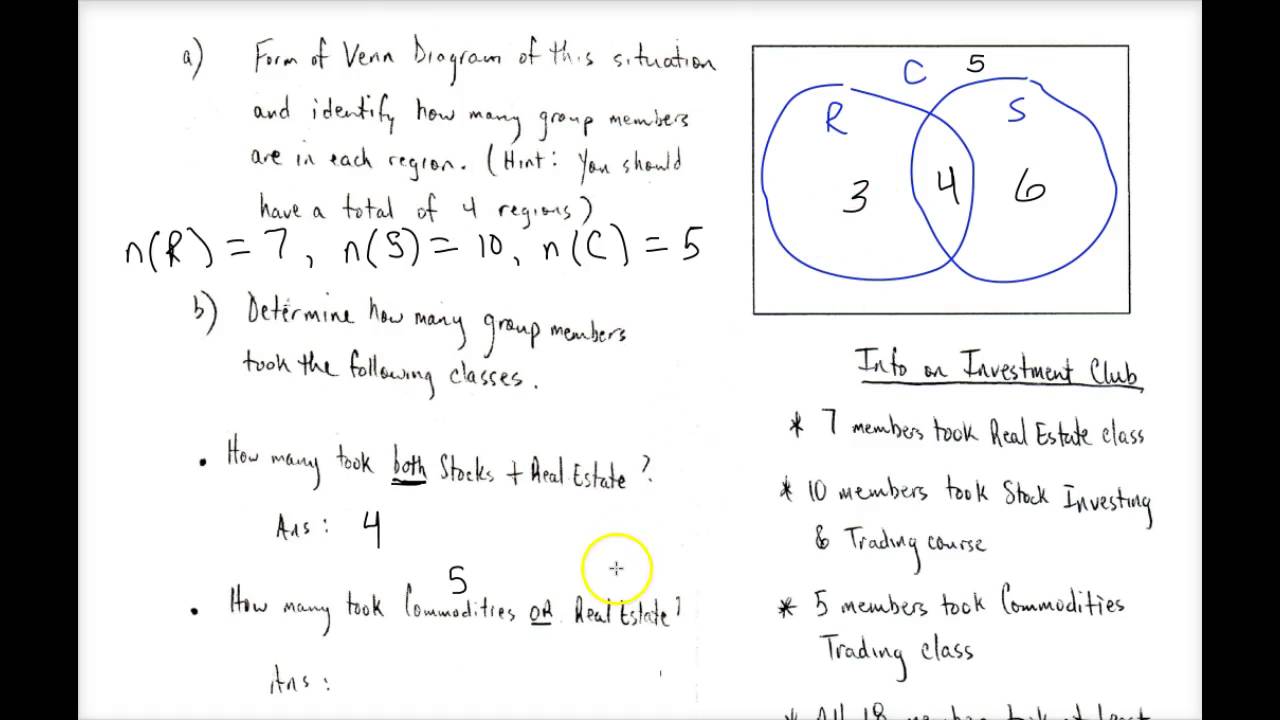 a) Form of Venn Diagram of this situation
and identify how many group members
are in each region. (Hint: You should
have a total of 4 regions)
n(R) = 7, n(S) = 10, n(C) = 5
b) Determine how many group members
took the following classes.
• How many took both Stocks + Real Estate?
Ans: 4
5
• How many took Commodities OR Real Estate?
Ans:
C 5
R S
3 4 6
Info on Investment Club
* 7 members took Real Estate class
* 10 members took Stock Investing
& Trading course
* 5 members took Commodities
Trading class
* All 18 member took at least